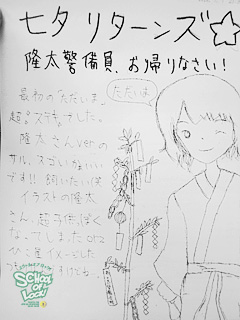 七夕 リターンズ☆
隆太警備員、お帰りなさい！
ただいま
最初の「ただいま」
超ステキでした。
隆太さんverの
サル、スゴいかわいい
です!! 飼いたい笑
イラストの隆太
さん、超子供っぽく
なってしまったorz
SCHOOL OF LOCK!